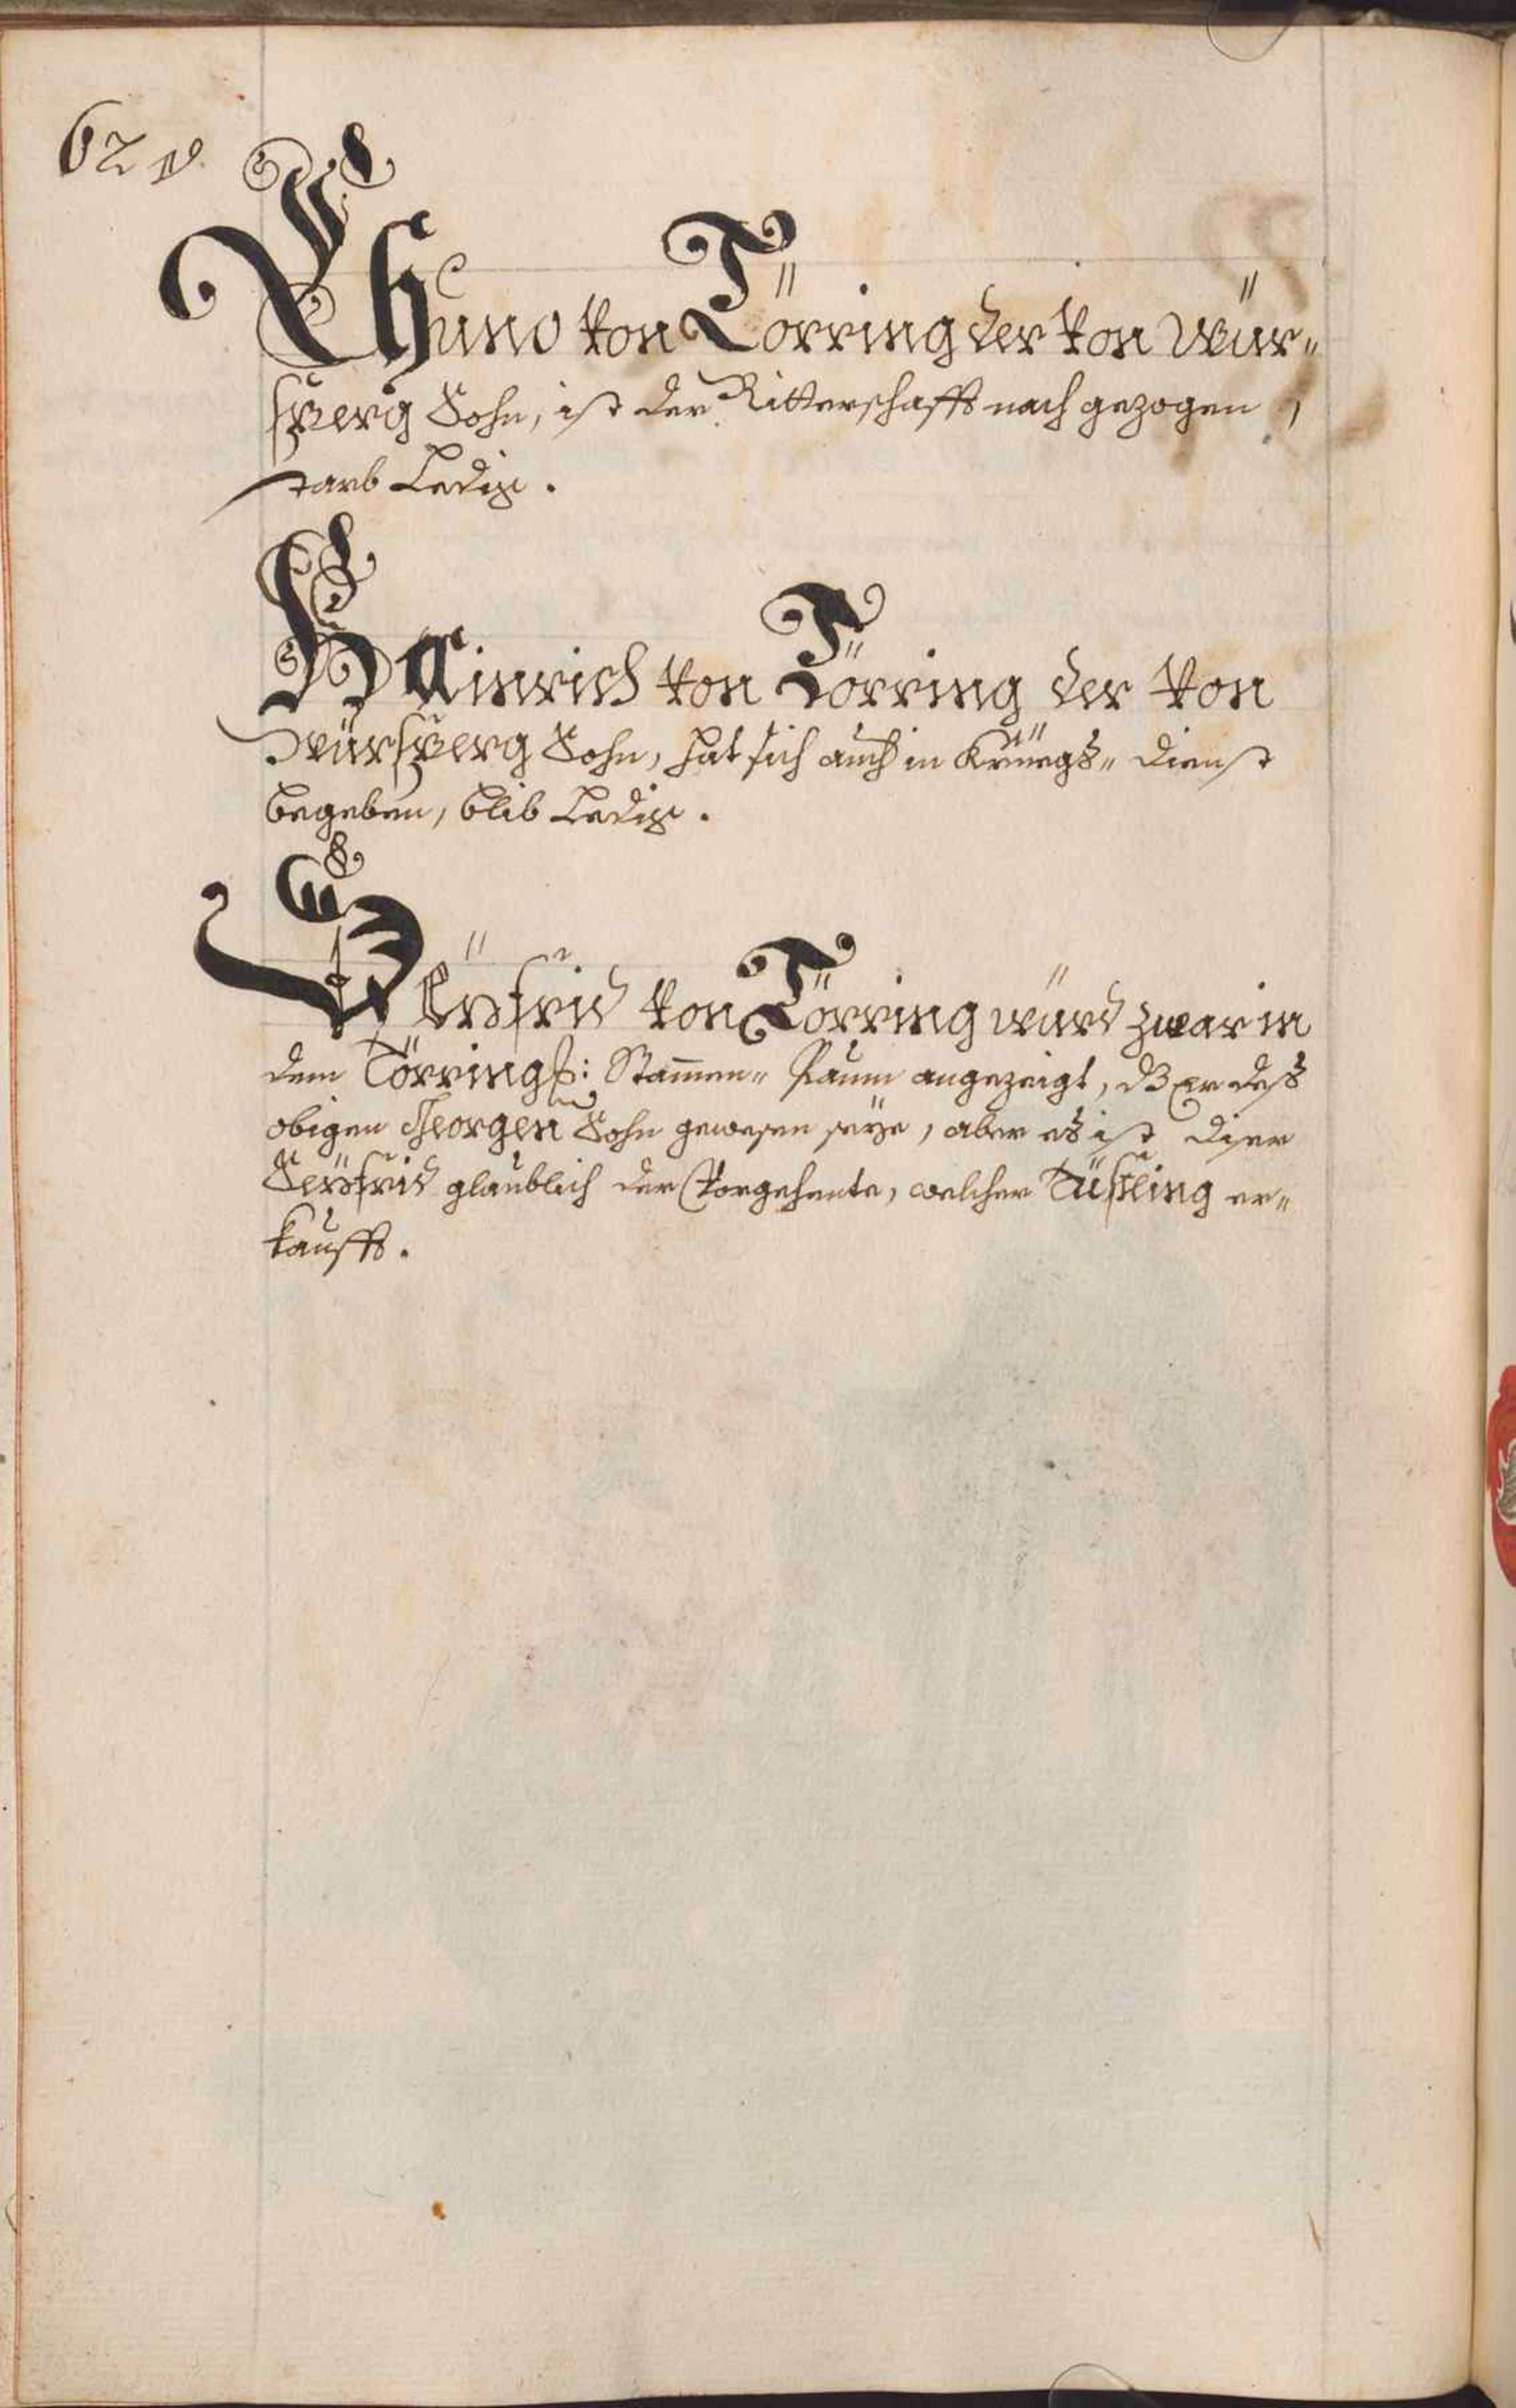 62 v.
Chuno von Törring der von Wür=
sperg Sohn, ist der Ritterschafft nach gezogen,
starb Ledig.
Hainrich von Törring der von
Würsperg Sohn, hat sich auch in Krüegs= dienst
begeben, blib Ledig.
Seyfrid von Törring würd zwar in
dem Törringß: Stam̄en= Paum angezeigt, dß er deß
obigen Georgen Sohn gewesen seÿe, aber es ist diser
Seyfrid glaublich der Vorgehente, welcher Tüßling er=
kaufft.